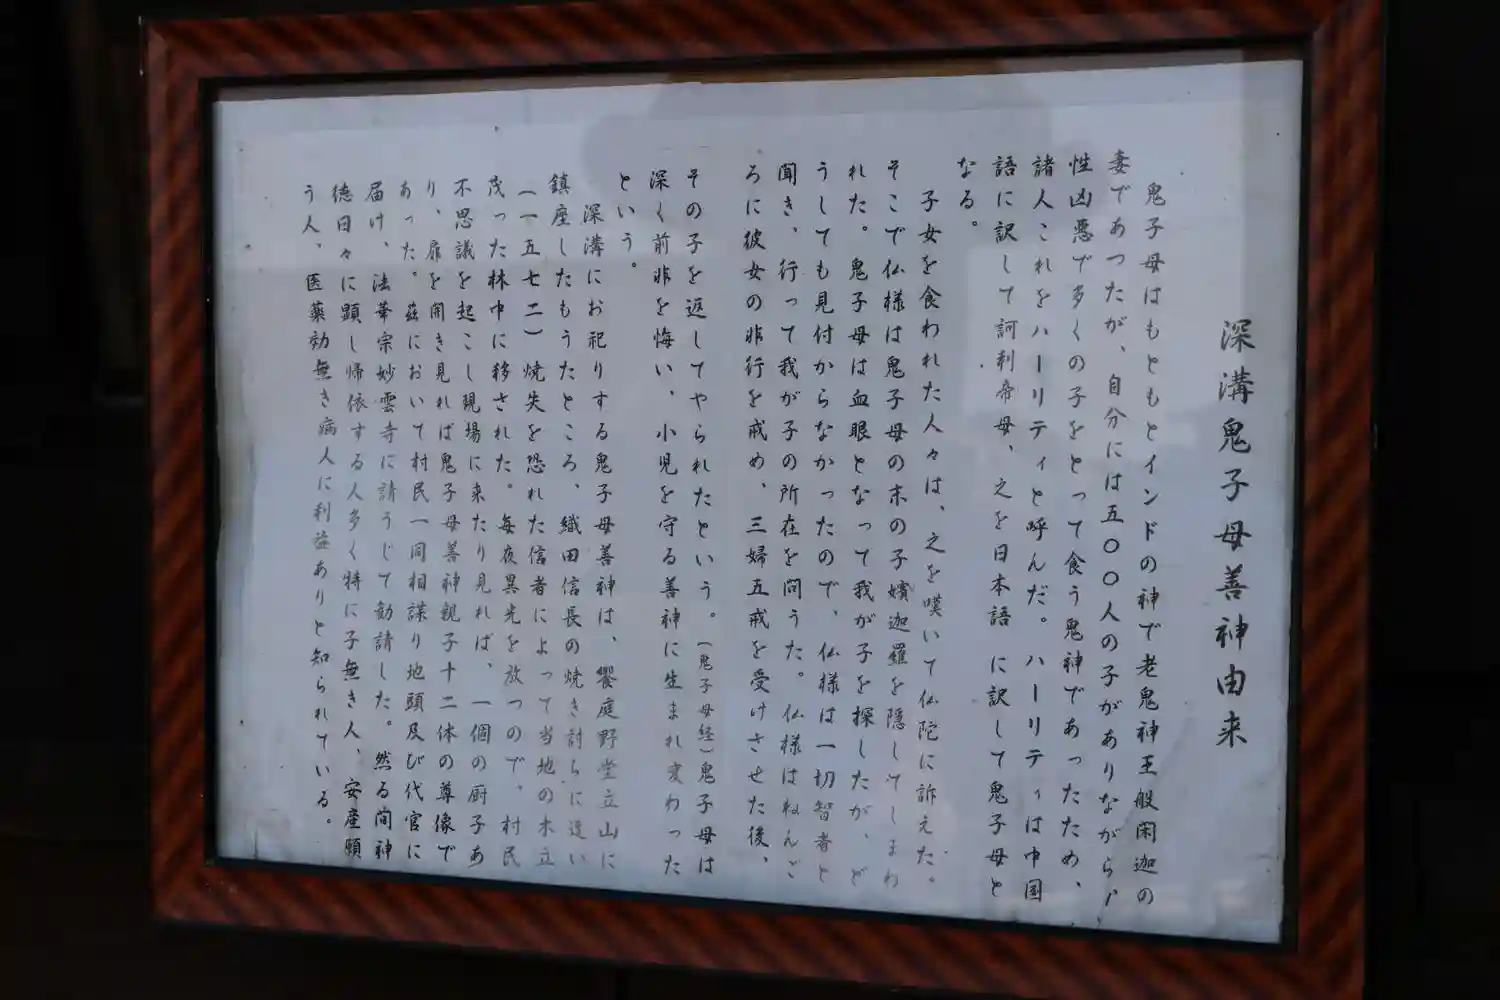 深溝鬼子母善神由来
鬼子母はもともとインドの神で老鬼神王般闍迦の
妻であつたが、自分には五〇〇人の子がありながら、
性凶悪で多くの子をとって食う鬼神であったため、
諸人これをハーリティと呼んだ。ハーリティは中国
語に訳して訶利帝母、之を日本語に訳して鬼子母と
なる。
子女を食われた人々は、之を嘆いて仏陀に訴えた。
そこで仏様は鬼子母の末の子嬪迦羅を隠してしまわ
れた。鬼子母は血眼となって我が子を探したが、ど
うしても見付からなかったので、仏様は一切智者と
聞き、行って我が子の所在を問うた。仏様はねんご
ろに彼女の非行を戒め、三婦五戒を受けさせた後、
その子を返してやられたという。(鬼子母経)鬼子母は
深く前非を悔い、小児を守る善神に生まれ変わった
という。
深溝にお祀りする鬼子母善神は、饗庭野堂立山に
鎮座したもうたところ、織田信長の焼き討ちに逢い
(一五七二)焼失を恐れた信者によって当地の木立
茂った林中に移された。毎夜異光を放つので、村民
不思議を起こし現場に来たり見れば、一個の厨子あ
り、扉を開き見れば鬼子母善神親子十二体の尊像で
あった。茲において村民一同相謀り地頭及び代官に
届け、法華宗妙雲寺に請うじて勧請した。然る間神
徳日々に顕し帰依する人多く特に子無き人、安産願
う人、医薬効無き病人に利益ありと知られている。